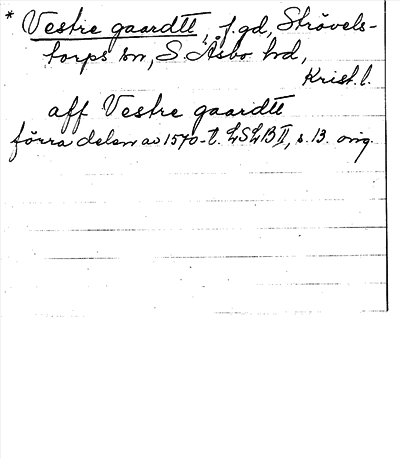 * Vestre gaardtt, f. gd, Strövels-
torps sn, S. Åsbo hd,
Krist. l.
aff Vestre gaardtt
förra delen av 1570-t. LSLB II, s. 13. orig.